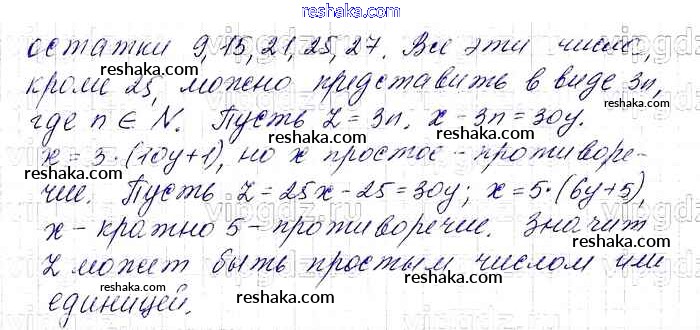 reshaka.com
остатки 9, 15, 21, 25, 27. Все эти числа,
кроме 25, можно представить в виде 3n,
где n ∈ N. Пусть Z = 3n. x - 3n = 30y.
x = 3·(10y+1), но x простое - противоре-
чие. Пусть Z = 25x - 25 = 30y; x = 5·(6y+5),
x - кратно 5 - противоречие. Значит
Z может быть простым числом или
единицей.
reshaka.com
reshaka.com
reshaka.com
reshaka.com
reshaka.com
reshaka.com
reshaka.com
reshaka.com